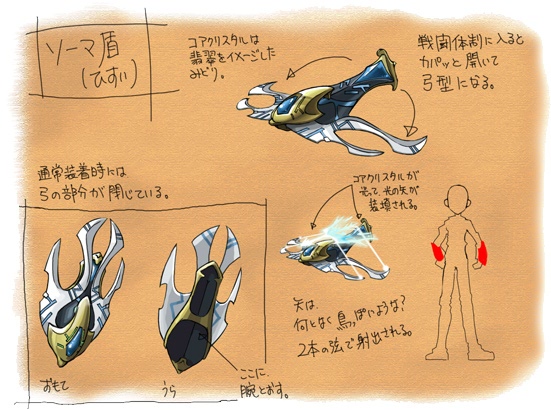 ソーマ盾
(ひすい)
コアクリスタルは
翡翠をイメージした
みどり。
戦闘体制に入ると
カパッと開いて
弓型になる。
通常装着時には
弓の部分が閉じている。
コアクリスタルが
光って、光の矢が
装填される。
矢は、
何となく鳥っぽいような?
2本の弦で射出される。
おもて
うら
ここに
腕とおす。